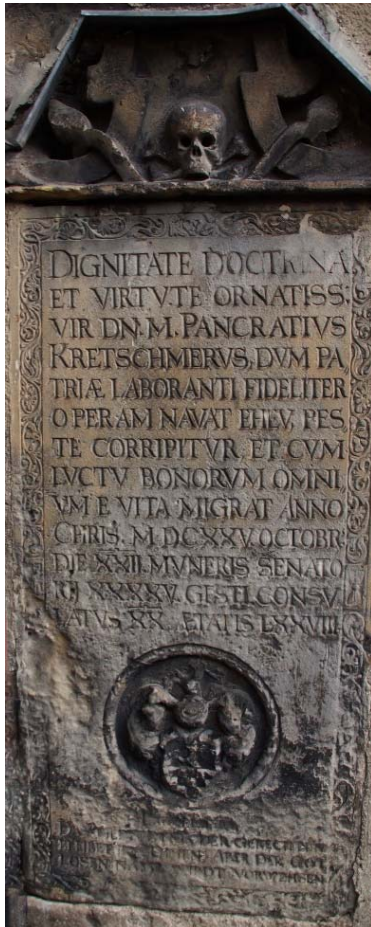 DIGNITATE DOCTRINA
ET VIRTVTE ORNATISS:
VIR DN. M. PANCRATIVS
KRETSCHMERVS, DVM PA
TRIÆ LABORANTI FIDELITER
OPERAM NAVAT EHEV, PES
TE CORRIPITVR ET CVM
LVCTV BONORVM OMNI
VM E VITA MIGRAT ANNO
CHRIS. M DCXXV. OCTOBR
DIE XXII. MVNERIS SENATO
RII XXXXV. GESTI CONSV
LATVS XX. ETATIS LXXVIII
DER GERECHTEN
ABER DER